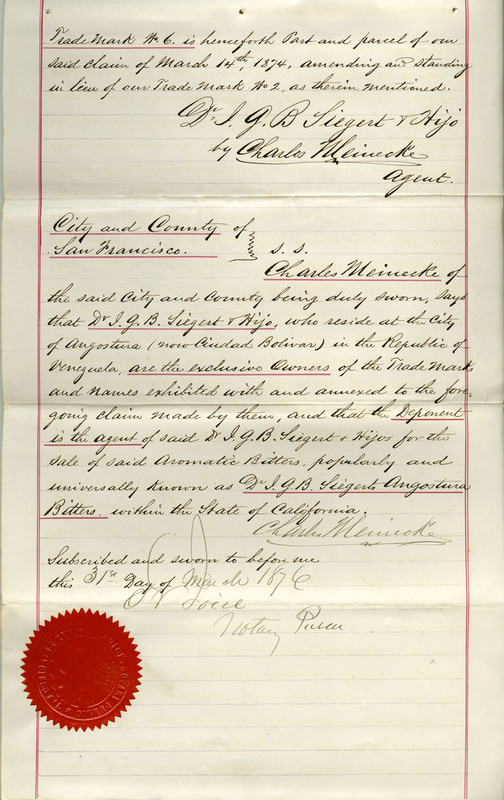 Trade Mark No 6. is henceforth Part and parcel of our
said claim of March 14th, 1874, amending and Standing
in lieu of our Trade Mark No 2, as therein mentioned.
Dr. J. G. B Siegert & Hijo
by Charles Meinecke
Agent.
City and County of
San Francisco. s. s.
Charles Meinecke of
the said City and County being duly sworn, says
that Dr J. G. B. Siegert & Hijo, who reside at the City
of Angostura (now Ciudad Bolivar) in the Republic of
Venezuela, are the exclusive Owners of the Trade Marks
and names exhibited with and annexed to the fore-
going claim made by them, and that the Deponent
is the agent of said Dr J. G. B. Siegert & Hijos for the
sale of said Aromatic Bitters, popularly and
universally known as Dr J. G. B. Siegerts Angostura
Bitters. within the State of California.
Charles Meinecke
Subscribed and sworn to before me
this 31st Day of March 1876
Notary Public